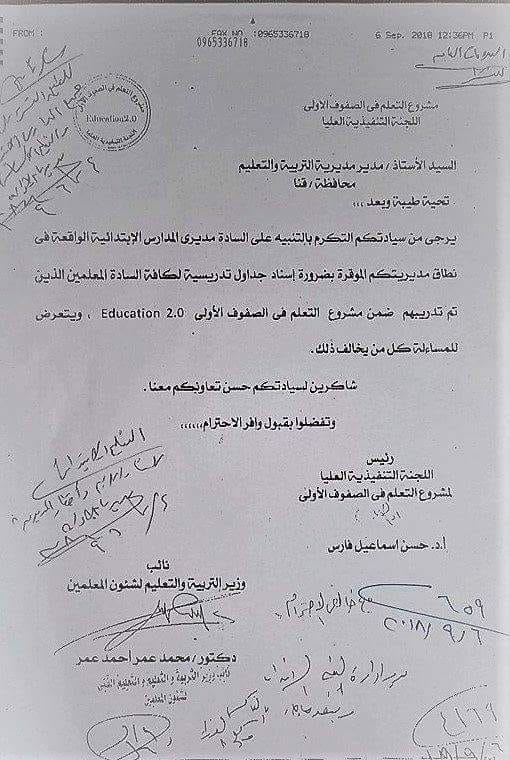 FROM : FAX NO :0965336718 6 Sep. 2018 12:36PM P1
0965336718
مشروع التعلم فى الصفوف الأولى
اللجنة التنفيذية العليا
مشروع التعلم فى الصفوف الأولى
Education2.0
اللجنة التنفيذية العليا
السيد الأستاذ / مدير مديرية التربية والتعليم
محافظة / قنا
تحية طيبة وبعد ,,,
يرجى من سيادتكم التكرم بالتنبيه على السادة مديرى المدارس الإبتدائية الواقعة فى
نطاق مديريتكم الموقرة بضرورة إسناد جداول تدريسية لكافة السادة المعلمين الذين
تم تدريبهم ضمن مشروع التعلم فى الصفوف الأولى Education 2.0 ، ويتعرض
للمساءلة كل من يخالف ذلك.
شاكرين لسيادتكم حسن تعاونكم معنا.
وتفضلوا بقبول وافر الاحترام,,,,,,
رئيس
اللجنة التنفيذية العليا
لمشروع التعلم فى الصفوف الأولى
أ.د. حسن اسماعيل فارس
نائب
وزير التربية والتعليم لشئون المعلمين
دكتور/ محمد عمر احمد عمر
نائب وزير التربية و التعليم و التعليم الفنى
لشئون المعلمين
مع خالص الاحترام
٦٥٩
٢٠١٨/٩/٦
٤١٦٩